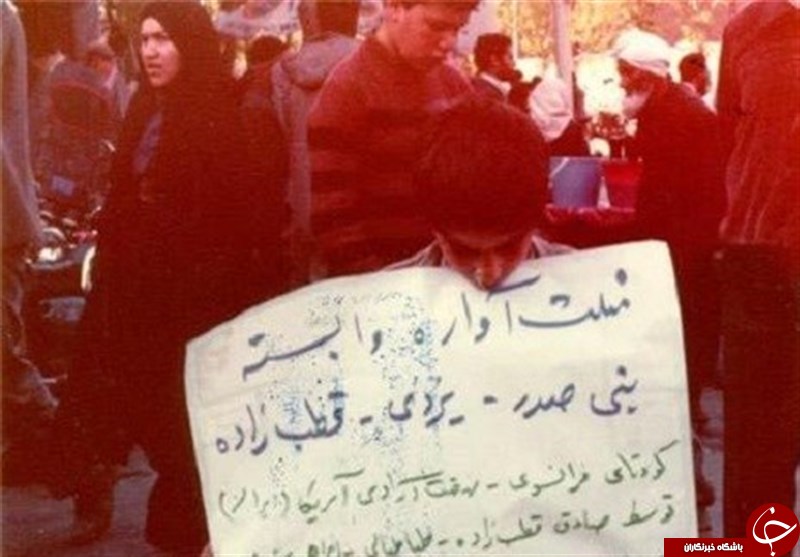 مثلث آواره وابسته
بنی صدر - یزدی - قطب زاده
کودتای فرانسوی - نهضت آزادی آمریکا (لیبرالها)
توسط صادق قطب زاده - طباطبائی
باشگاه خبرنگاران